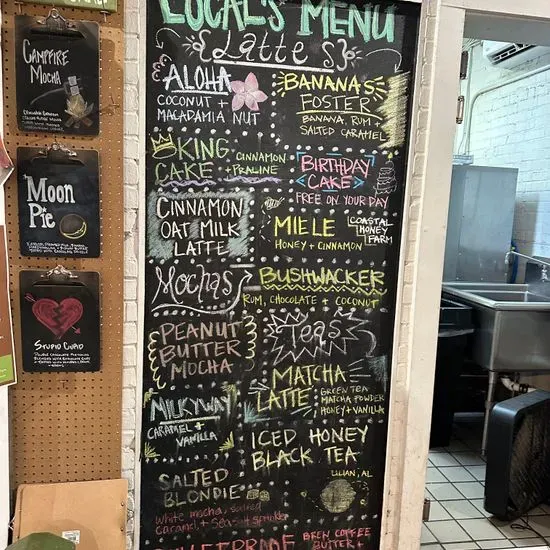 LOCAL'S MENU
Lattes
ALOHA
COCONUT +
MACADAMIA NUT
BANANAS
FOSTER
BANANA, RUM +
SALTED CARAMEL
KING
CAKE
CINNAMON
+ PRALINE
BIRTHDAY
CAKE
FREE ON YOUR DAY
CINNAMON
OAT MILK
LATTE
MIELE
HONEY + CINNAMON
COASTAL
HONEY
FARM
Mochas
BUSHWACKER
RUM, CHOCOLATE + COCONUT
PEANUT
BUTTER
MOCHA
Teas
MATCHA
LATTE
GREEN TEA
MATCHA POWDER
HONEY + VANILLA
MILKYWAY
CARAMEL +
VANILLA
ICED HONEY
BLACK TEA
LILLIAN, AL
SALTED
BLONDIE
white mocha, salted
caramel, + sea salt sprinkle
BULLETPROOF
BREW COFFEE
BUTTER +
CAMPFIRE
MOCHA
Moon
Pie
STUPID CUPID